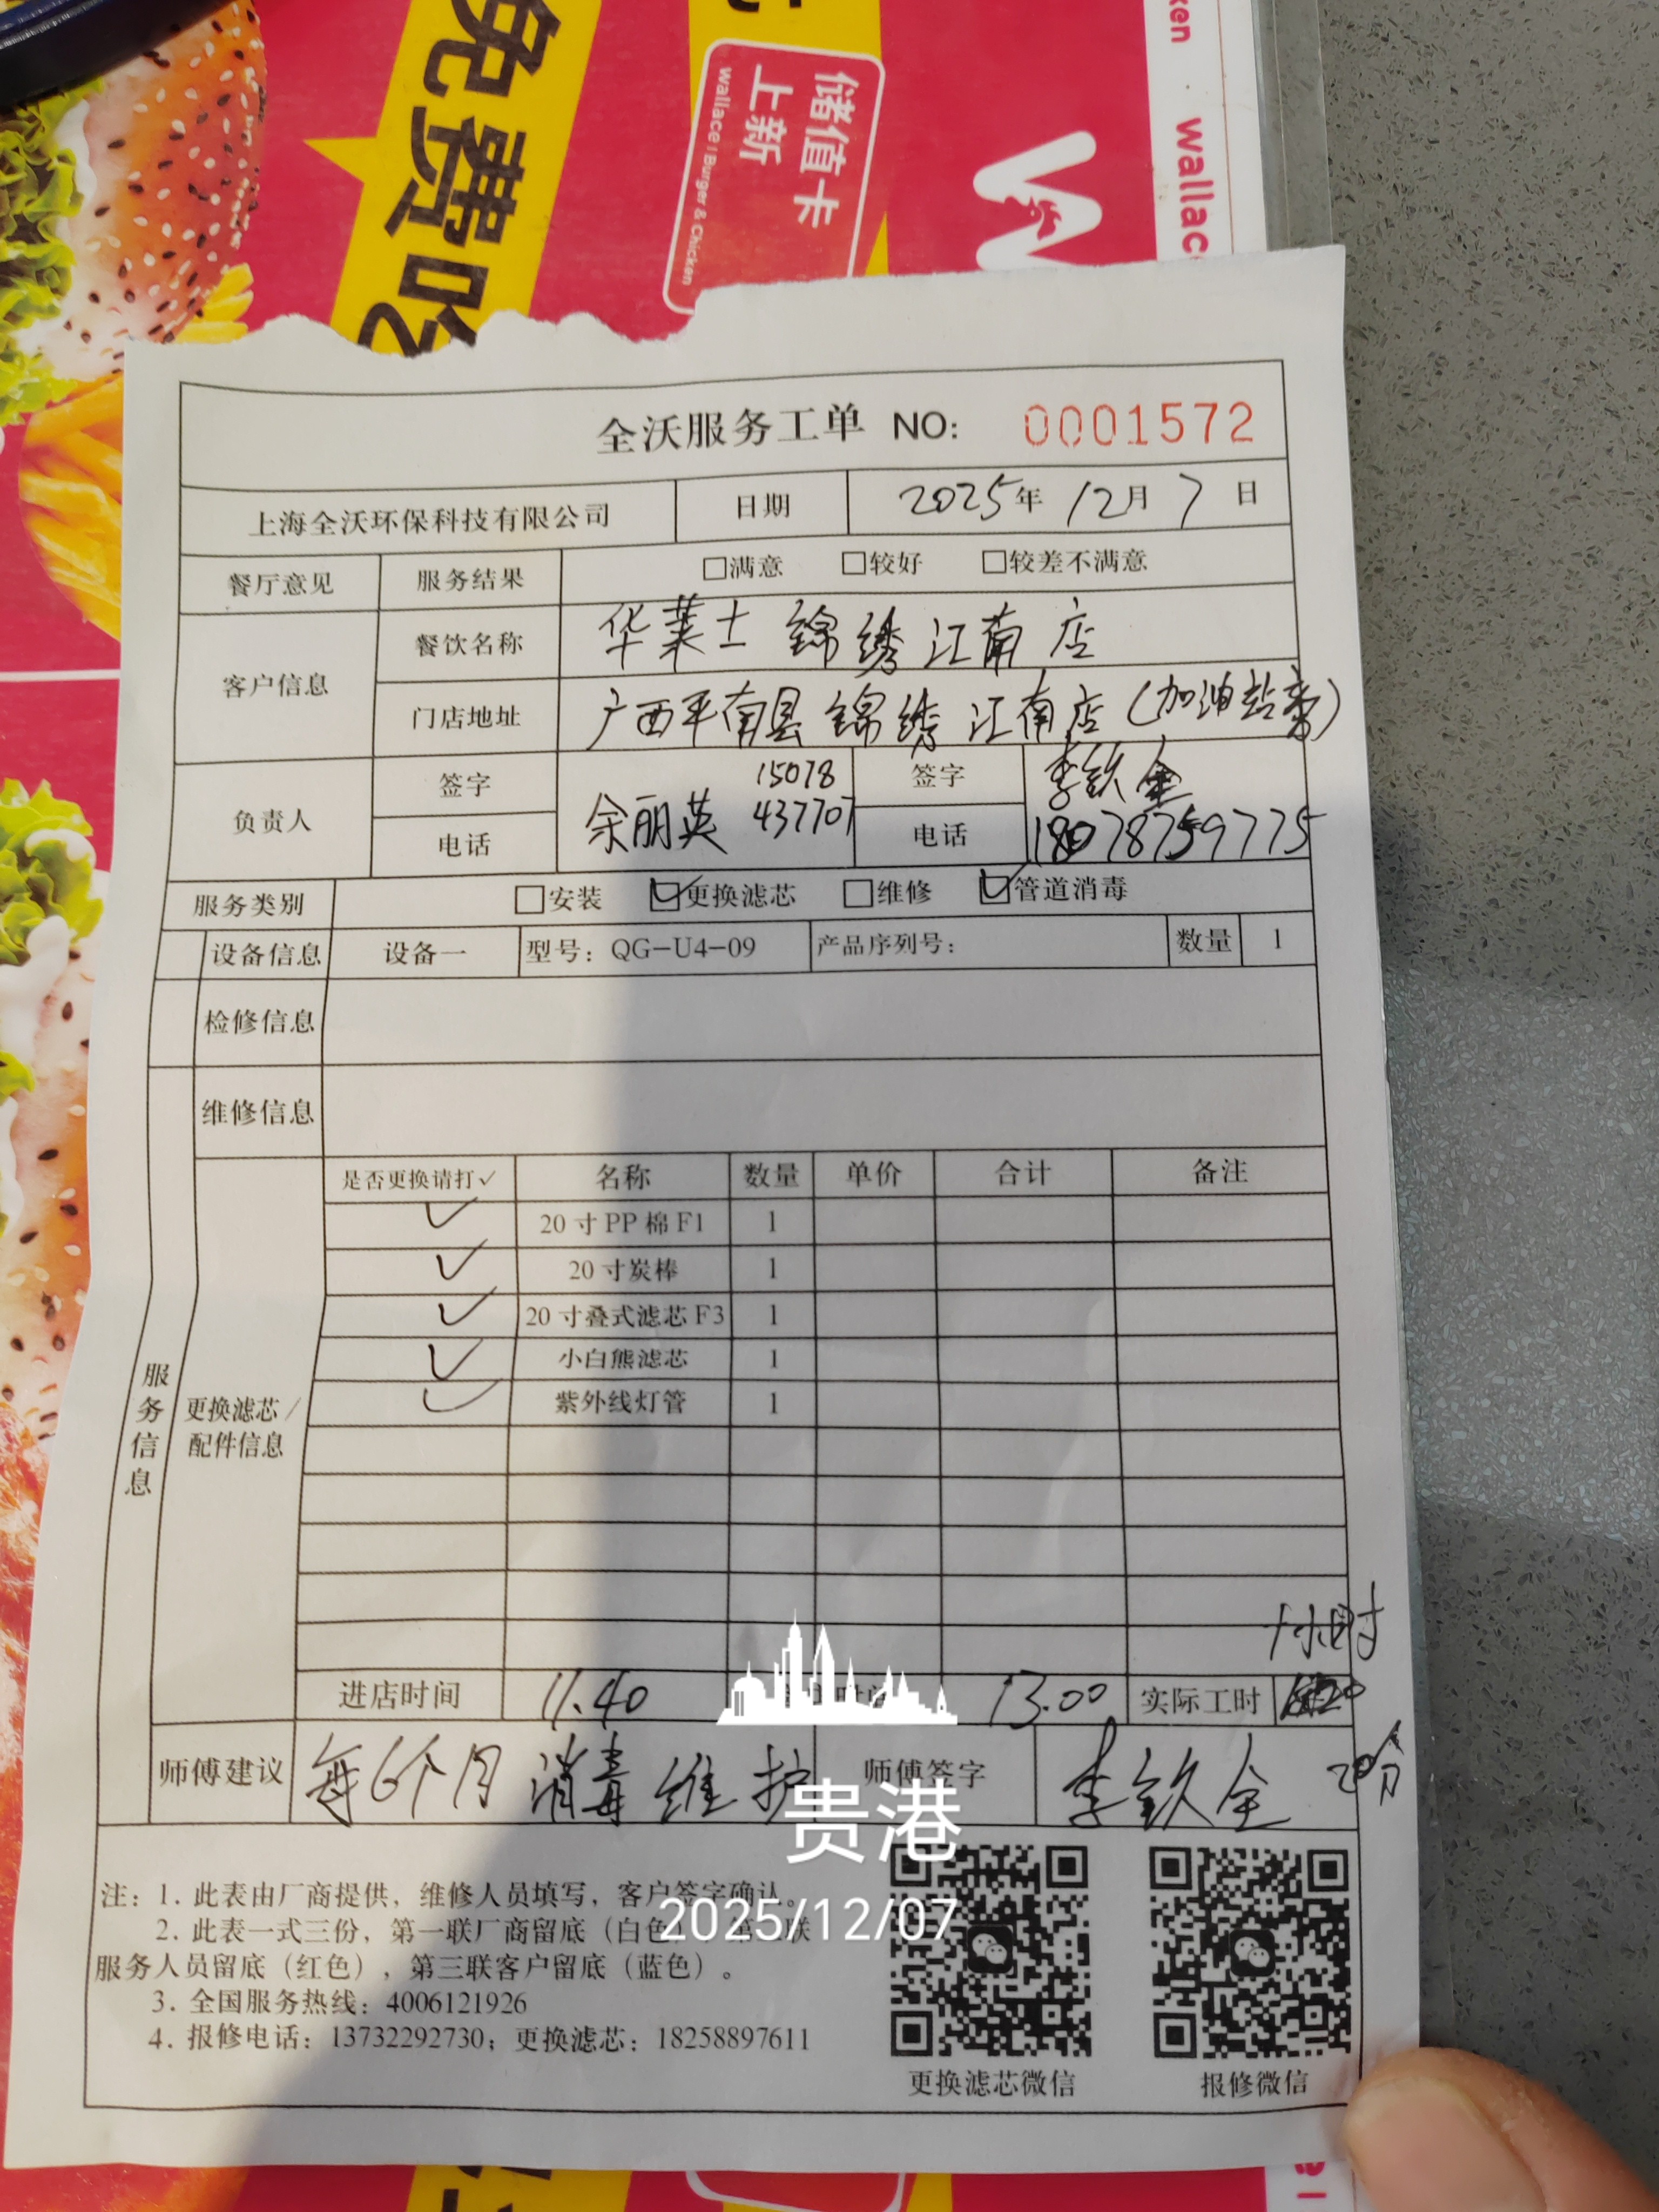 免费吃
储值卡
上新
wallace | Burger & Chicken
wallac
全沃服务工单 NO: 0001572
上海全沃环保科技有限公司 日期 2025年 12月 7 日
餐厅意见 服务结果 □满意 □较好 □较差不满意
客户信息 餐饮名称 华莱士 锦绣江南店
门店地址 广西平南县锦绣江南店(加油站旁)
负责人 签字 15078 签字 李钦全
电话 余丽英 437707 电话 18078759775
服务类别 □安装 ☑更换滤芯 □维修 ☑管道消毒
设备信息 设备一 型号: QG-U4-09 产品序列号: 数量 1
检修信息
维修信息
是否更换请打✓ 名称 数量 单价 合计 备注
✓ 20寸PP棉F1 1
✓ 20寸炭棒 1
✓ 20寸叠式滤芯F3 1
✓ 小白熊滤芯 1
✓ 紫外线灯管 1
服务信息
更换滤芯/
配件信息
1小时
进店时间 11.40 13.00 实际工时
师傅建议 每6个月消毒维护 师傅签字 李钦全 20分
贵港
2025/12/07
注: 1. 此表由厂商提供, 维修人员填写, 客户签字确认。
2. 此表一式三份, 第一联厂商留底(白色) 第 联
服务人员留底(红色), 第三联客户留底(蓝色)。
3. 全国服务热线: 4006121926
4. 报修电话: 13732292730; 更换滤芯: 18258897611
更换滤芯微信 报修微信